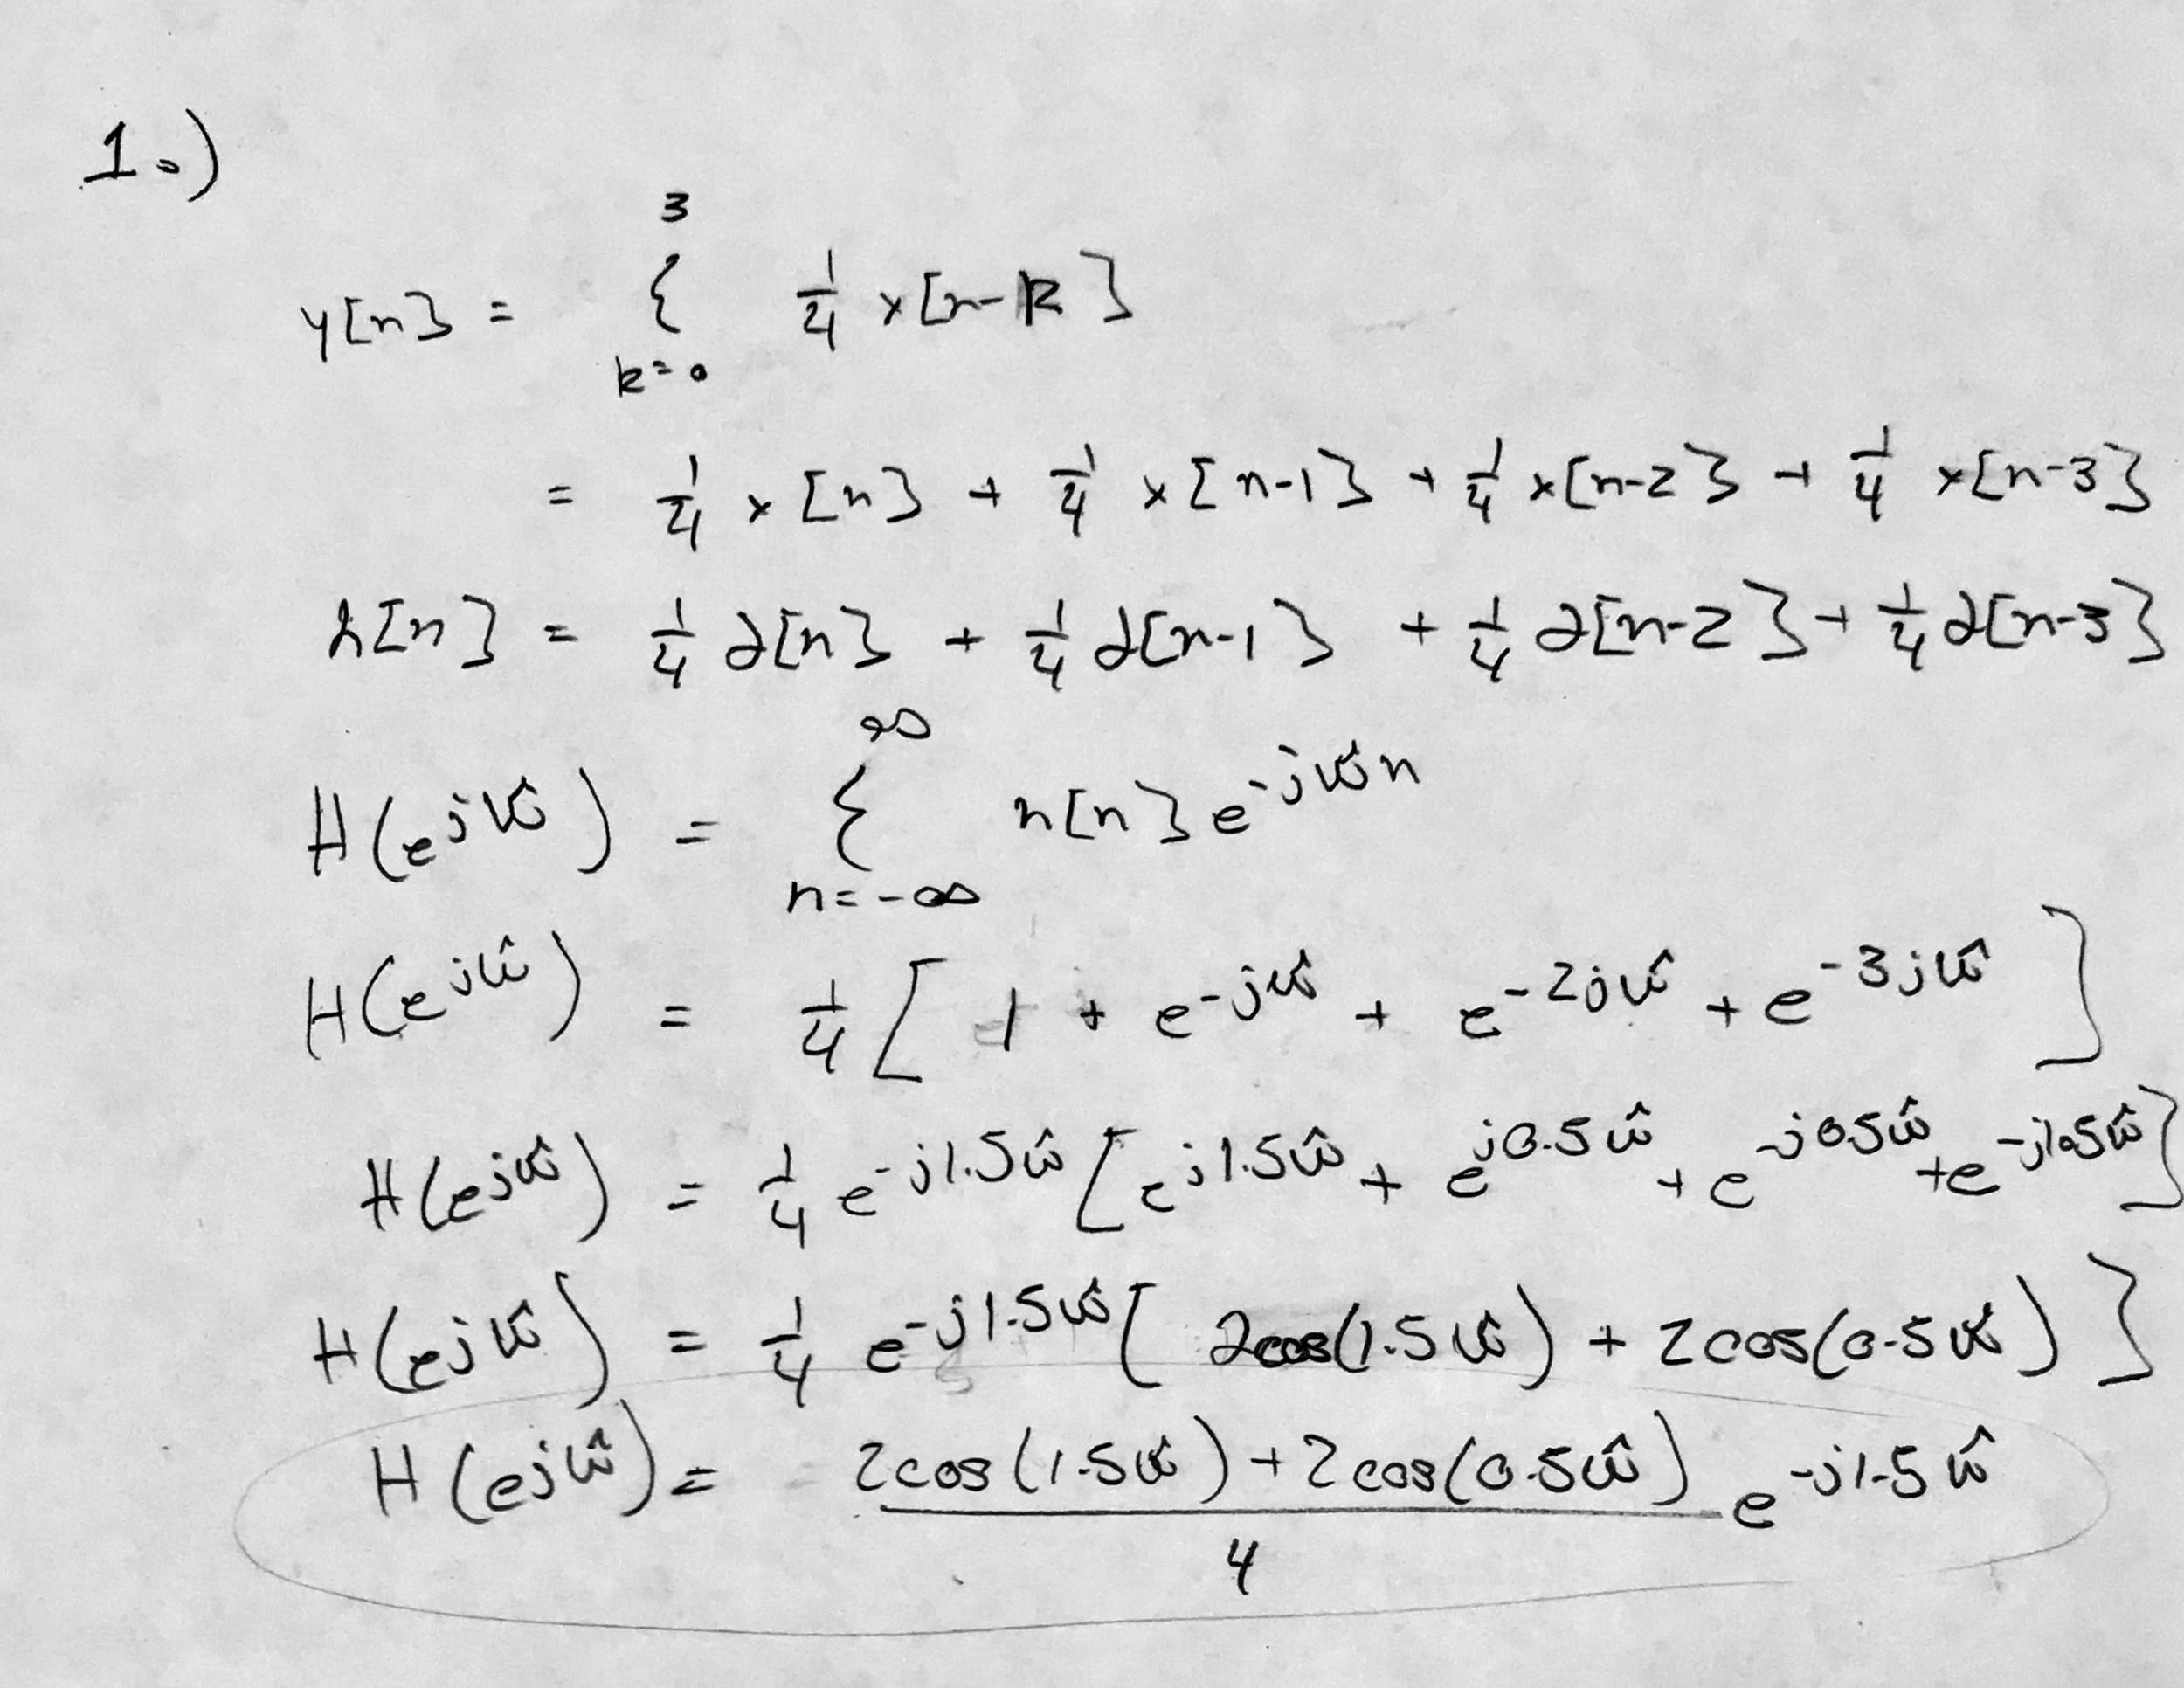 1.)
3
y[n] = Σ 1/4 x[n-k]
k=0
= 1/4 x[n] + 1/4 x[n-1] + 1/4 x[n-2] + 1/4 x[n-3]
h[n] = 1/4 ∂[n] + 1/4 ∂[n-1] + 1/4 ∂[n-2] + 1/4 ∂[n-3]
∞
H(e^jω̂) = Σ h[n] e^-jω̂n
n=-∞
H(e^jω̂) = 1/4 [ 1 + e^-jω̂ + e^-2jω̂ + e^-3jω̂ ]
H(e^jω̂) = 1/4 e^-j1.5ω̂ [ e^j1.5ω̂ + e^j0.5ω̂ + e^-j0.5ω̂ + e^-j1.5ω̂ ]
H(e^jω̂) = 1/4 e^-j1.5ω̂ [ 2cos(1.5ω̂) + 2cos(0.5ω̂) ]
H(e^jω̂) = 2cos(1.5ω̂) + 2cos(0.5ω̂) e^-j1.5ω̂
4